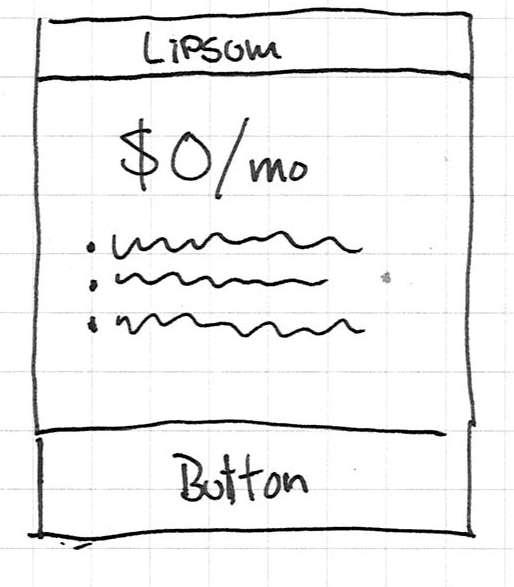 Lipsom
$0/mo
Button